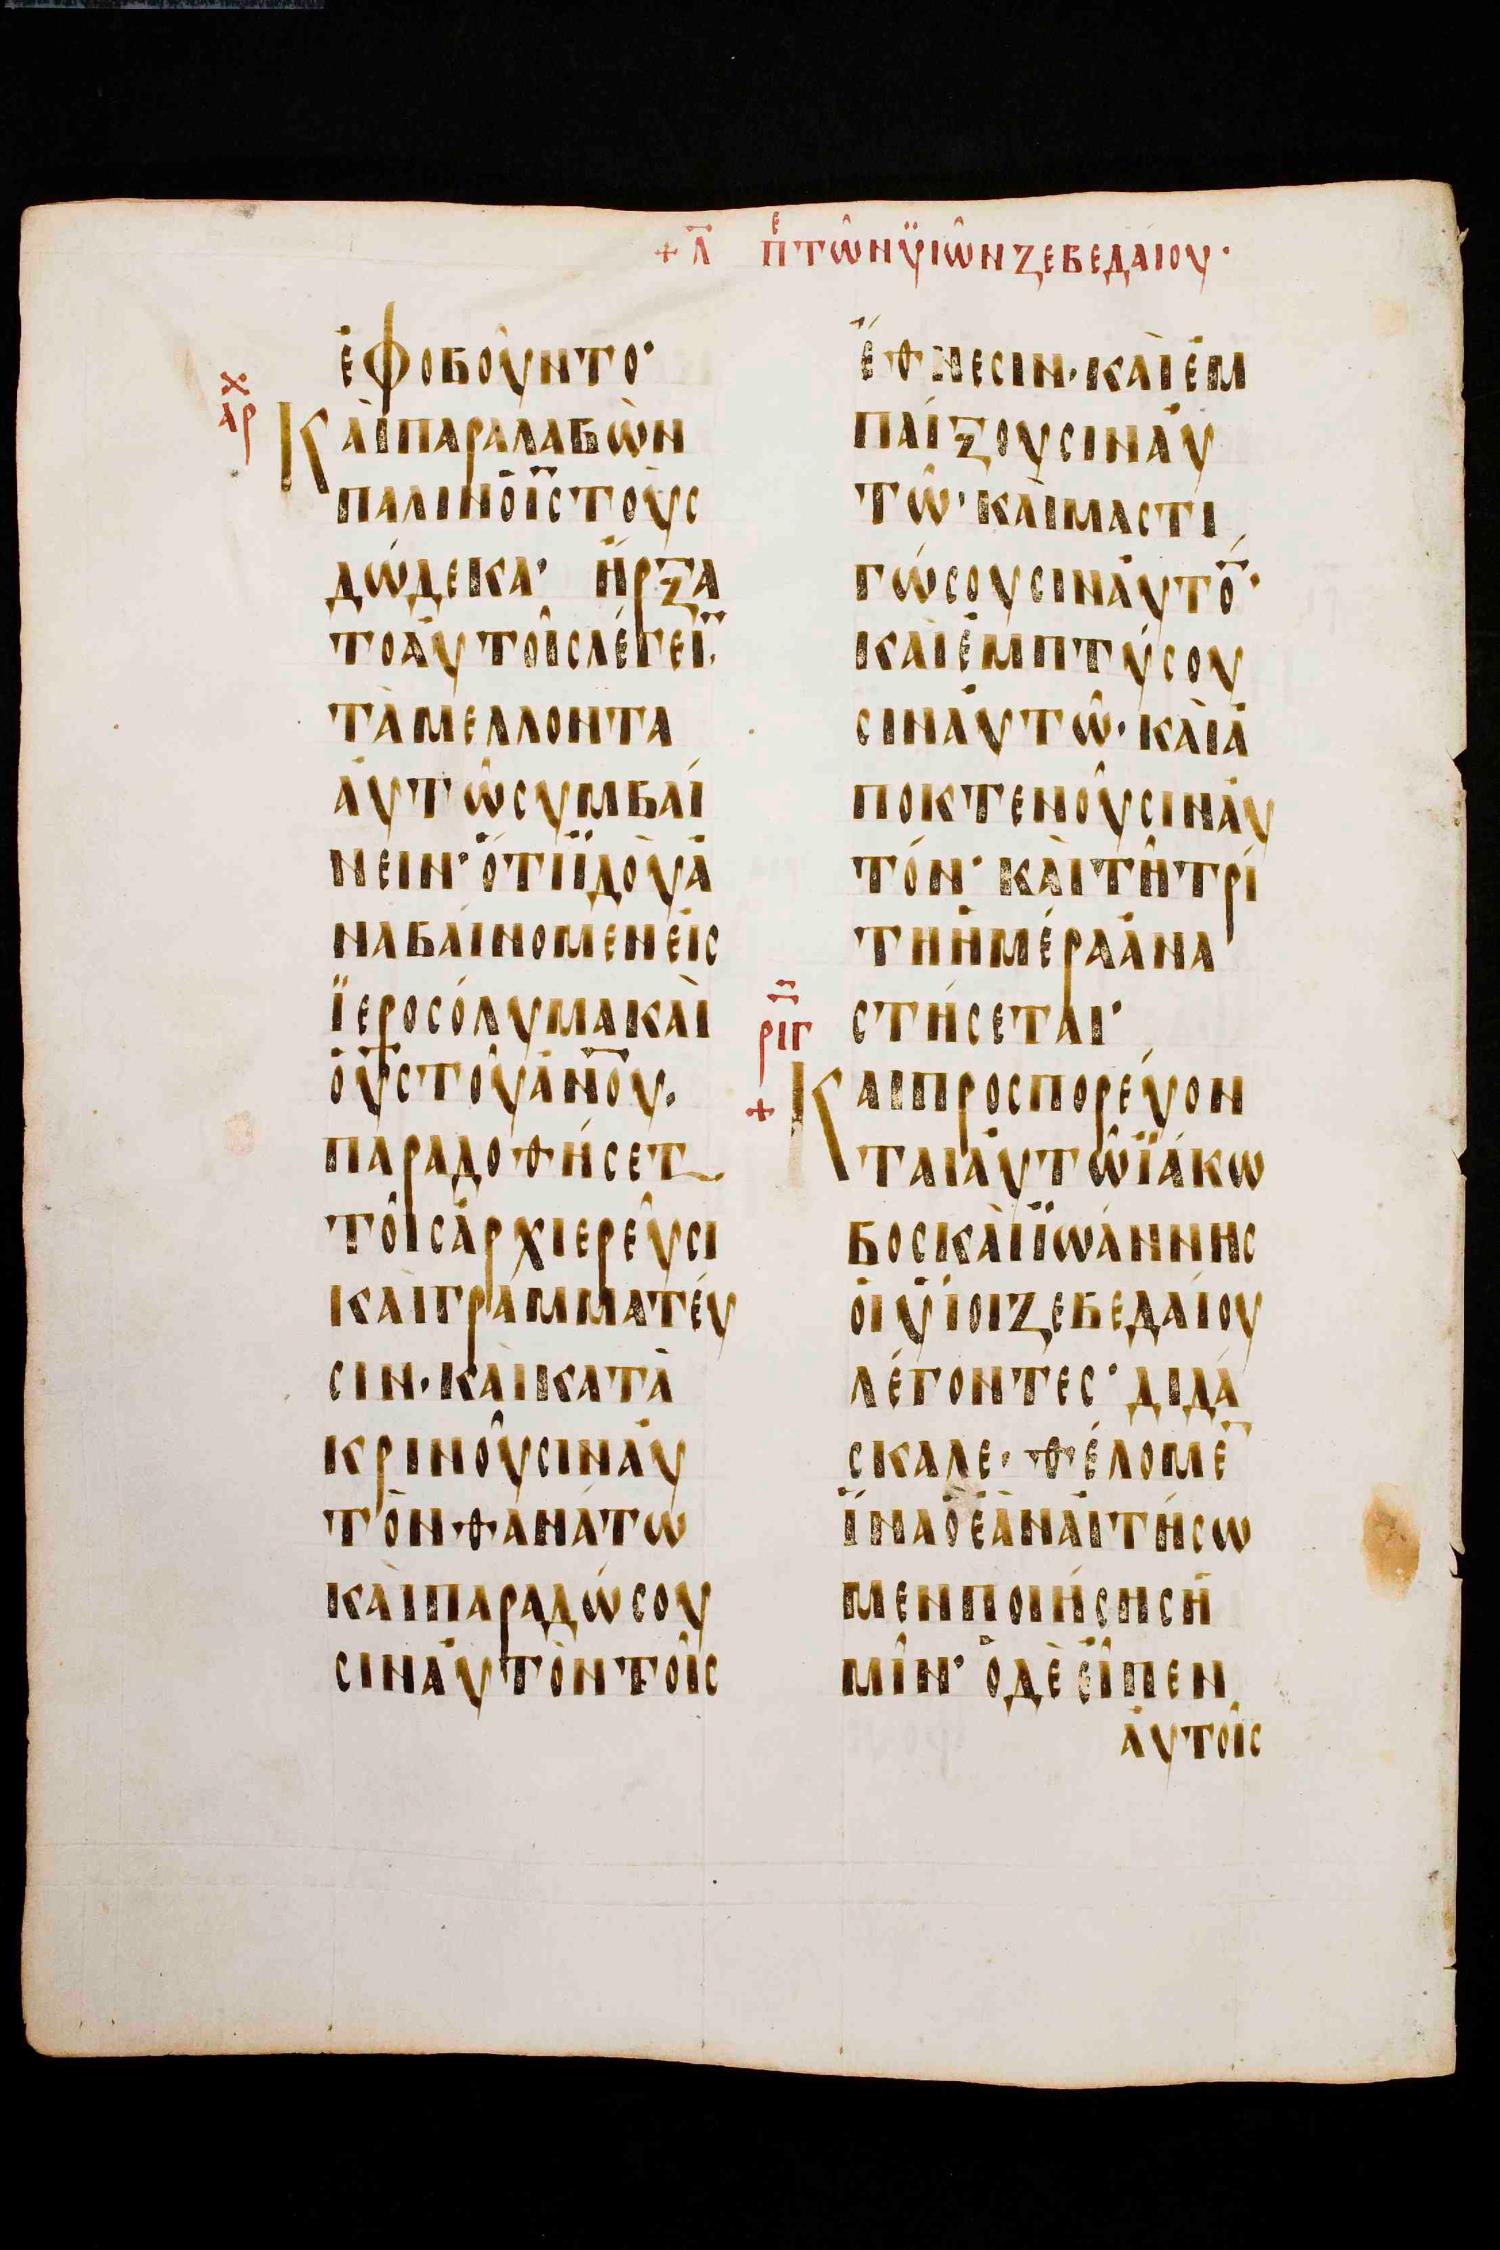 + Λ̅ Πε ΤῶΝ ΫἱῶΝ ΖΕΒΕΔΑΊΟΥ·
ἐφοβοῦντο·
χ
αρ
Καὶ παραλαβὼν
πάλιν ὁ ι̅ς̅ τοὺς
δώδεκα· ἤρξα
το ἀυτοῖς λέγεϊ̅·
τὰ μέλλοντα
ἀυτῶ συμβαί
νειν· ὅτι ϊδοὺ ἀ
ναβαίνομεν εἰς
ϊεροσόλυμα καὶ
ὁ υ̅ς̅ τοῦ ἀν̅ο̅υ̅·
παραδοθήσετ
τοῖς ἀρχιερεῦσι
καὶ γραμματέυ
σιν· καὶ κατα
κρινοῦσιν ἀυ
τὸν θανάτω
καὶ παραδώσου
σιν ἀυτὸν τοῖς
ἔθνεσιν· καὶ ἐμ
παίξουσιν ἀυ
τῶ· καὶ μαστι
γώσουσιν ἀυτο̅·
καὶ ἐμπτύσου
σιν ἀυτῶ· καὶ ἀ
ποκτενοῦσιν ἀυ
τόν· καὶ τῆ τρί
τη ἡμέρα ἀνα
στήσεται·
ριγ
+
Και προσπορέυον
ται ἀυτῶ ϊάκω
βος καὶ ϊωάννης
οἱ ϋἱοι ζεβεδαίου
λέγοντες· διδά
σκαλε· θέλομε̅
ἵνα ὃ ἐὰν αἰτήσω
μεν ποιήσης ἡ
μῖν· ὁ δὲ εἶπεν
ἀυτοῖς